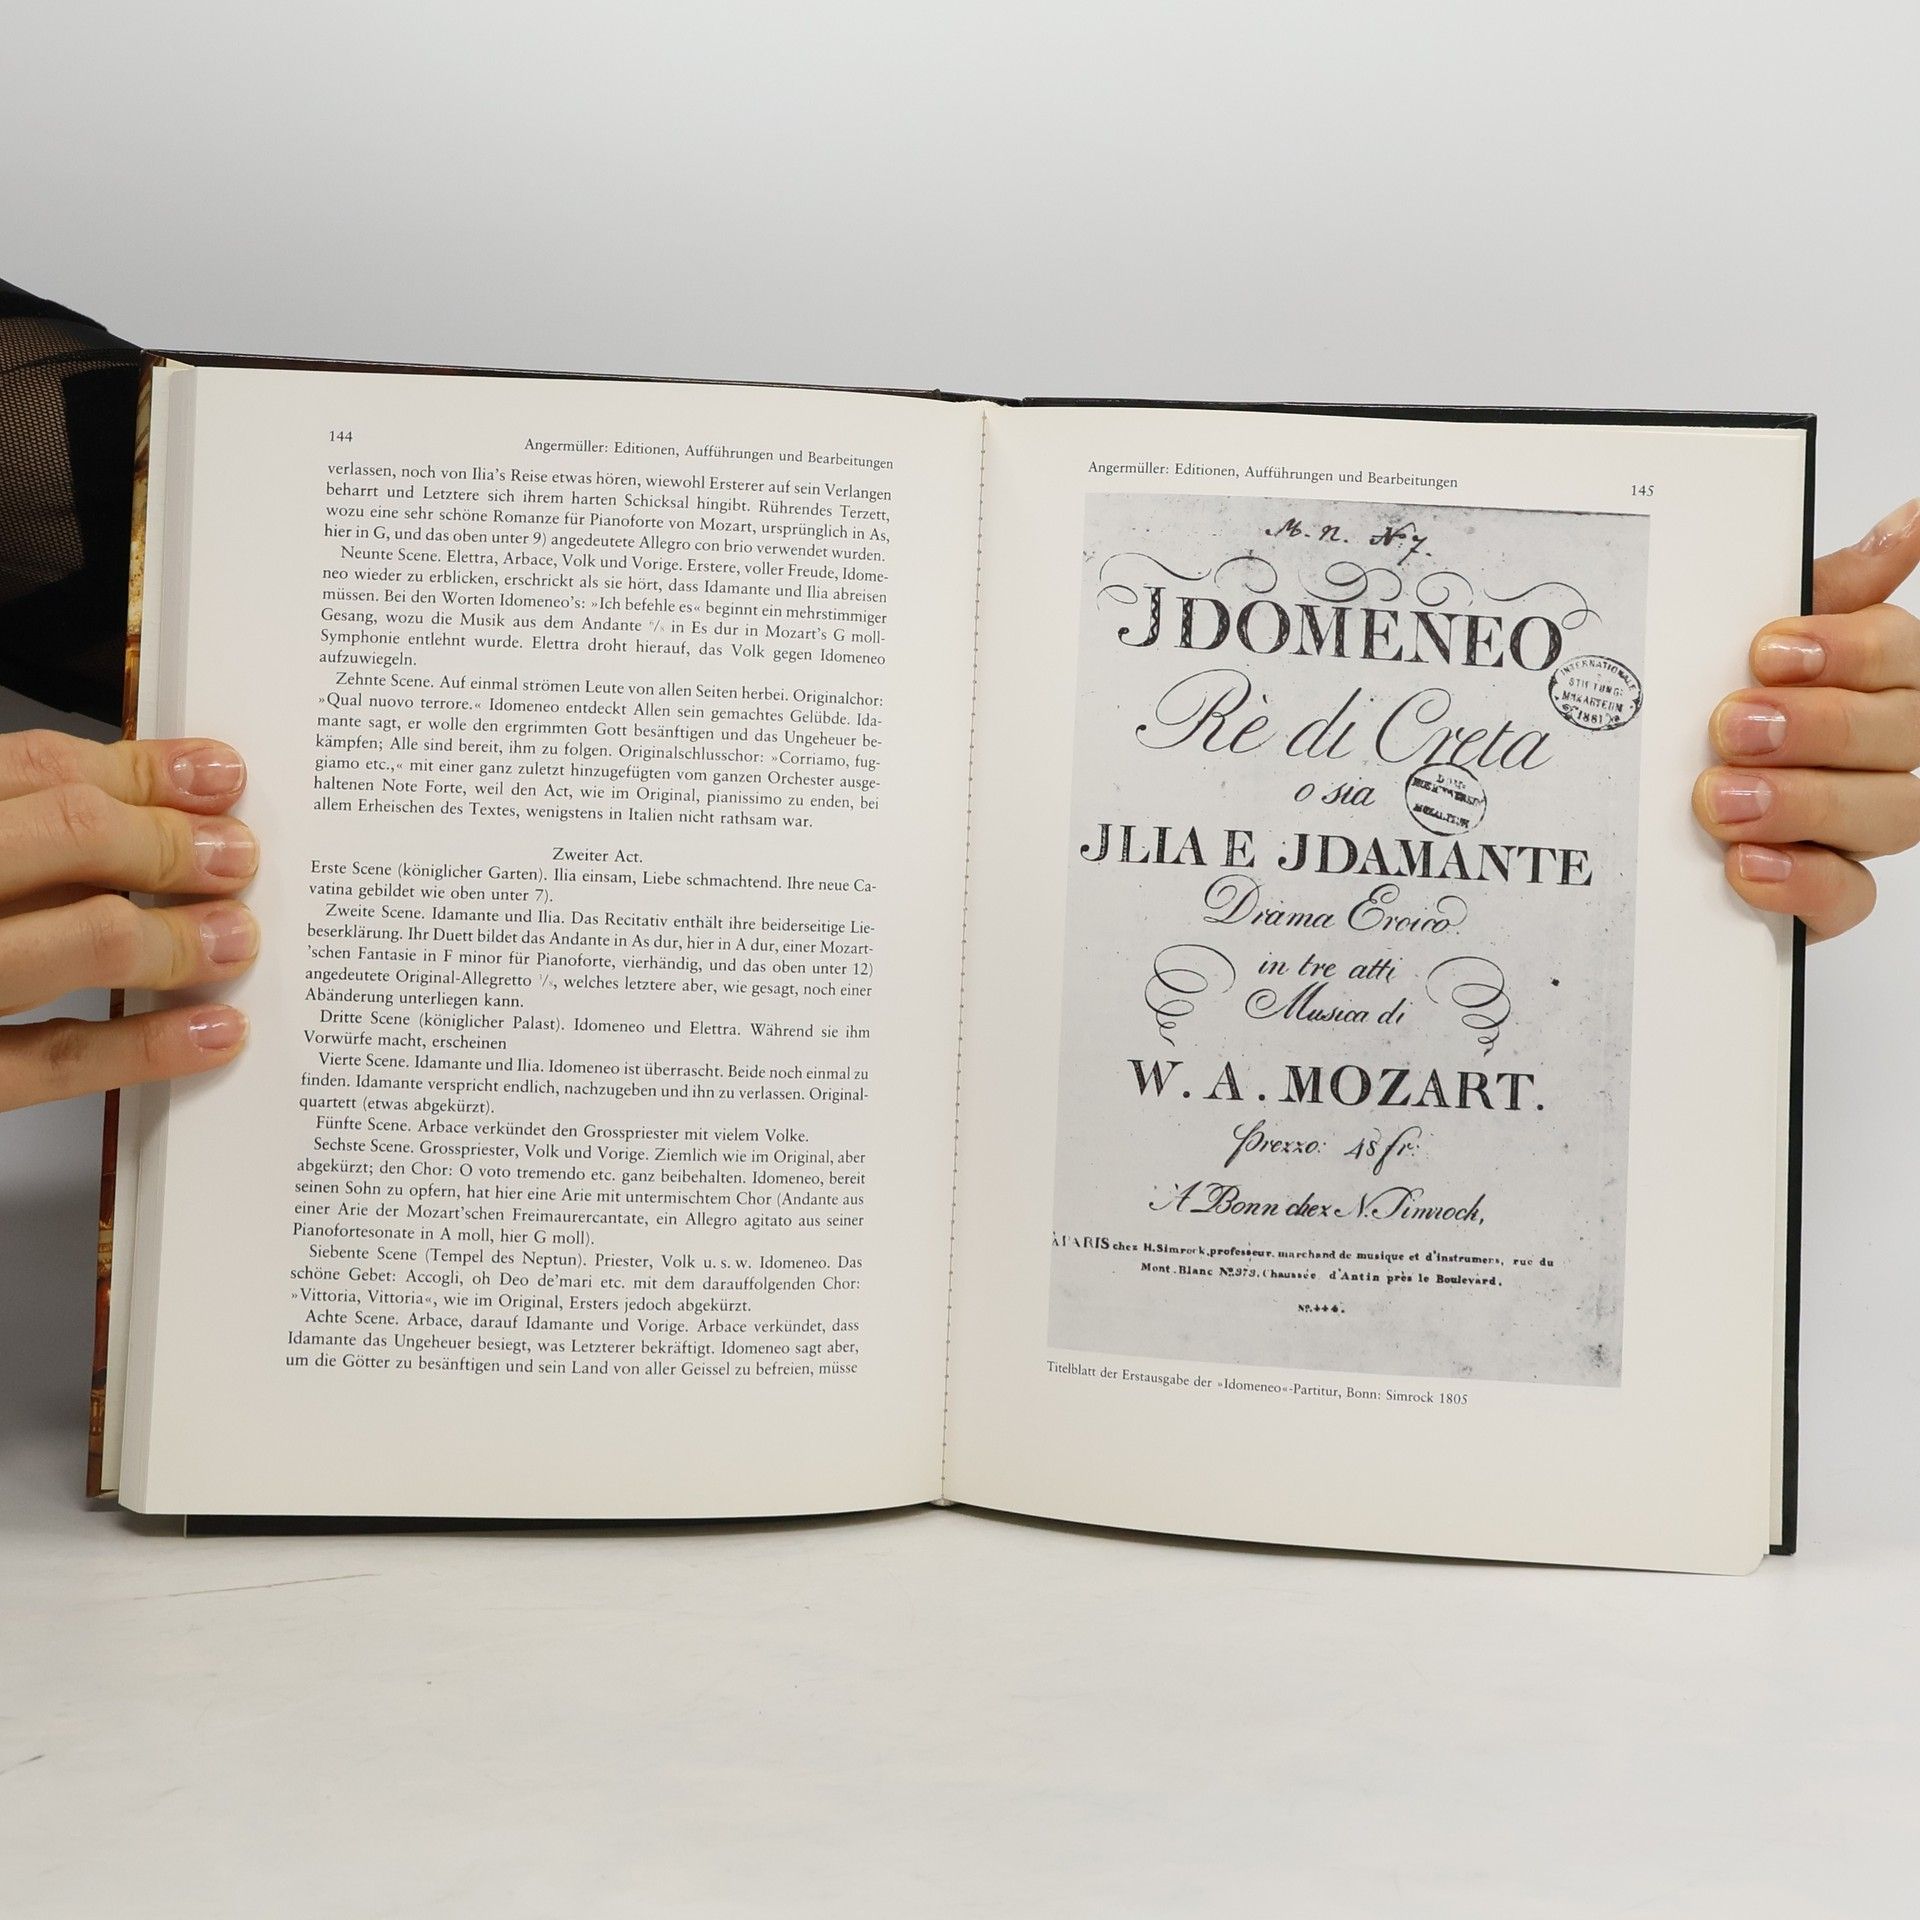 144
Angermüller: Editionen, Aufführungen und Bearbeitungen
verlassen, noch von Ilia's Reise etwas hören, wiewohl Ersterer auf sein Verlangen
beharrt und Letztere sich ihrem harten Schicksal hingibt. Rührendes Terzett,
wozu eine sehr schöne Romanze für Pianoforte von Mozart, ursprünglich in As,
hier in G, und das oben unter 9) angedeutete Allegro con brio verwendet wurden.
Neunte Scene. Elettra, Arbace, Volk und Vorige. Erstere, voller Freude, Idome-
neo wieder zu erblicken, erschrickt als sie hört, dass Idamante und Ilia abreisen
müssen. Bei den Worten Idomeneo's: »Ich befehle es« beginnt ein mehrstimmiger
Gesang, wozu die Musik aus dem Andante in Es dur in Mozart's G moll-
Symphonie entlehnt wurde. Elettra droht hierauf, das Volk gegen Idomeneo
aufzuwiegeln.
Zehnte Scene. Auf einmal strömen Leute von allen Seiten herbei. Originalchor:
»Qual nuovo terrore.« Idomeneo entdeckt Allen sein gemachtes Gelübde. Ida-
mante sagt, er wolle den ergrimmten Gott besänftigen und das Ungeheuer be-
kämpfen; Alle sind bereit, ihm zu folgen. Originalschlusschor: »Corriamo, fug-
giamo etc.,« mit einer ganz zuletzt hinzugefügten vom ganzen Orchester ausge-
haltenen Note Forte, weil den Act, wie im Original, pianissimo zu enden, bei
allem Erheischen des Textes, wenigstens in Italien nicht rathsam war.
Zweiter Act.
Erste Scene (königlicher Garten). Ilia einsam, Liebe schmachtend. Ihre neue Ca-
vatina gebildet wie oben unter 7).
Zweite Scene. Idamante und Ilia. Das Recitativ enthält ihre beiderseitige Lie-
beserklärung. Ihr Duett bildet das Andante in As dur, hier in A dur, einer Mozart-
'schen Fantasie in F minor für Pianoforte, vierhändig, und das oben unter 12)
angedeutete Original-Allegretto, welches letztere aber, wie gesagt, noch einer
Abänderung unterliegen kann.
Dritte Scene (königlicher Palast). Idomeneo und Elettra. Während sie ihm
Vorwürfe macht, erscheinen
Vierte Scene. Idamante und Ilia. Idomeneo ist überrascht. Beide noch einmal zu
finden. Idamante verspricht endlich, nachzugeben und ihn zu verlassen. Original-
quartett (etwas abgekürzt).
Fünfte Scene. Arbace verkündet den Grosspriester mit vielem Volke.
Sechste Scene. Grosspriester, Volk und Vorige. Ziemlich wie im Original, aber
abgekürzt; den Chor: O voto tremendo etc. ganz beibehalten. Idomeneo, bereit
seinen Sohn zu opfern, hat hier eine Arie mit untermischtem Chor (Andante aus
einer Arie der Mozart'schen Freimaurercantate, ein Allegro agitato aus seiner
Pianofortesonate in A moll, hier G moll).
Siebente Scene (Tempel des Neptun). Priester, Volk u. s. w. Idomeneo. Das
schöne Gebet: Accogli, oh Deo de'mari etc. mit dem darauffolgenden Chor:
»Vittoria, Vittoria«, wie im Original, Ersters jedoch abgekürzt.
Achte Scene. Arbace, darauf Idamante und Vorige. Arbace verkündet, dass
Idamante das Ungeheuer besiegt, was Letzterer bekräftigt. Idomeneo sagt aber,
um die Götter zu besänftigen und sein Land von aller Geissel zu befreien, müsse
Angermüller: Editionen, Aufführungen und Bearbeitungen
145
M. N. No 7.
JDOMENEO
INTERNATIONALE
STIFTUNG:
MOZARTEUM
1881
Rè di Creta
o sia
JLIA E JDAMANTE
Drama Eroico
in tre atti
Musica di
W. A. MOZART.
Prezzo: 48 fr:
A Bonn chez N. Simrock,
A PARIS chez H. Simrock, professeur, marchand de musique et d'instrumens, rue du
Mont-Blanc No. 373. Chaussée d'Antin près le Boulevard.
No. 444.
Titelblatt der Erstausgabe der »Idomeneo«-Partitur, Bonn: Simrock 1805